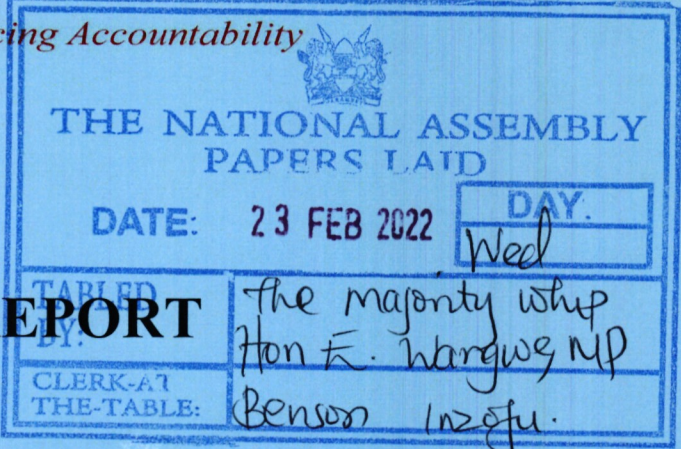 cing Accountability
THE NATIONAL ASSEMBLY
PAPERS LAID
DATE: 23 FEB 2022 DAY.
Wed
TABLED BY: the majority whip
EPORT Hon E. Wangwe, MP
CLERK-AT THE-TABLE: Benson Inzofu.